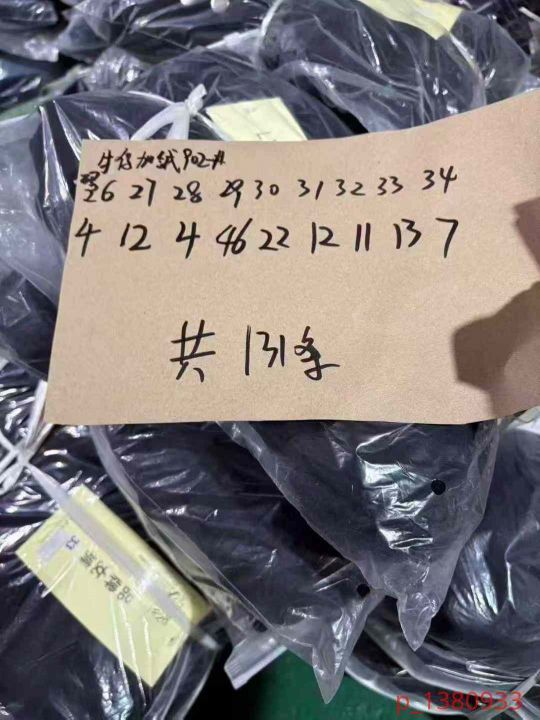 牛仔加绒902#
码26 27 28 29 30 31 32 33 34
4 12 4 46 22 12 11 13 7
共131条
品牌女裤
33
p_1380933